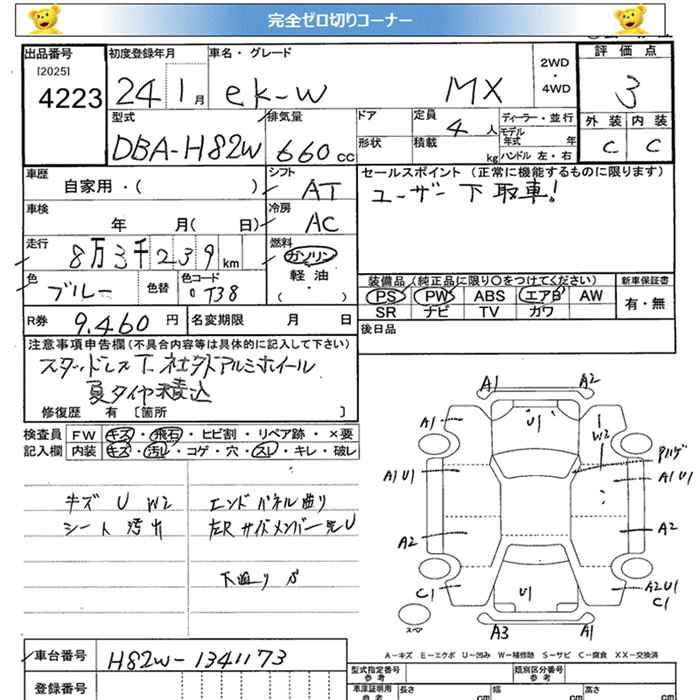 完全ゼロ切りコーナー
出品番号 初度登録年月 車名・グレード 2WD ・ 4WD 評価点
[2025]
4223 24 1月 ek-W MX 3
型式 排気量 ドア 定員 4人 ディーラー・並行 外装 内装
モデル年式 年
DBA-H82W 660cc 形状 積載 kg ハンドル 左・右 C C
車歴 シフト セールスポイント (正常に機能するものに限ります)
自家用・( ) AT ユーザー下取車!
車検 冷房
年 月( 日) AC
走行 燃料
8万3千239km ガソリン
色 色替 色コード 軽油 装備品 (純正品に限り○をつけてください) 新車保証書
ブルー T38 ( ・ ) PS PW ABS エアB AW 有・無
SR ナビ TV カワ
R券 9,460円 名変期限 月 日 後日品
注意事項申告欄(不具合内容等は具体的に記入して下さい)
スタッドレスT.社外アルミホイール
夏タイヤ積込
修復歴 有 〔箇所 〕
検査員 FW キズ・飛石・ヒビ割・リペア跡・×要
記入欄 内装 キズ・汚れ・コゲ・穴・スレ・キレ・破レ
キズ U W2 エンドパネル曲り
シート汚れ 左Rサイドメンバー先U
A1 A2
A1 U1 W2 Pハゲ
A1U1 A1U1
A2 A2
C1 U1 A2U1
C1
スペア A3 A1
A-キズ E-エクボ U-凹み W-補修跡 S-サビ C-腐食 XX-交換済
車台番号 H82W-1341173
型式指定番号 参考 類別区分番号 参考
登録番号 車庫証明用 参考 長さ cm 幅 cm 高さ cm